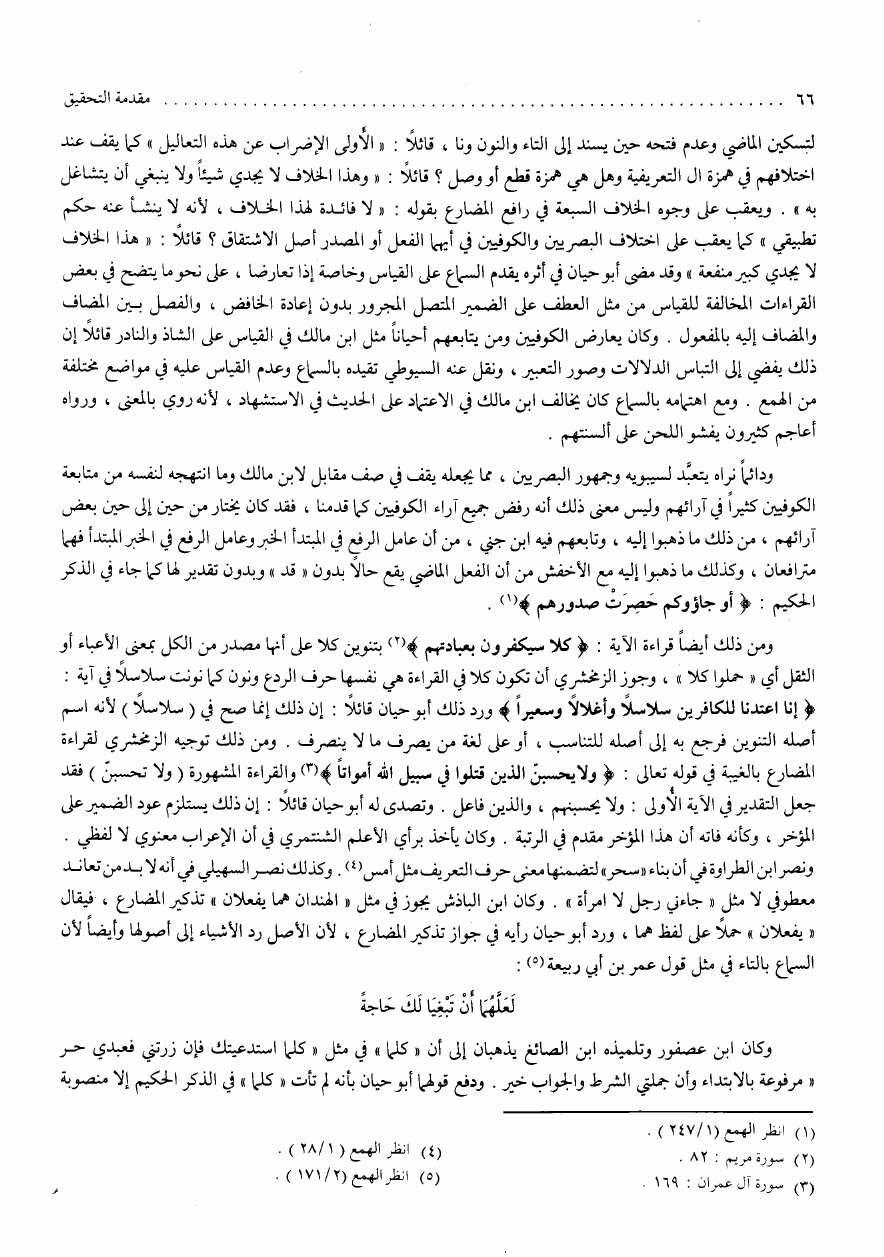 ٦٦ ............................................................... مقدمة التحقيق
لتسكين الماضي وعدم فتحه حين يسند إلى التاء والنون ونا ، قائلاً : « الأُولى الإضراب عن هذه التعاليل » كما يقف عند
اختلافهم في همزة ال التعريفية وهل هي همزة قطع أو وصل ؟ قائلاً : « وهذا الخلاف لا يجدي شيئاً ولا ينبغي أن يتشاغل
به » . ويعقب على وجوه الخلاف السبعة في رافع المضارع بقوله : « لا فائدة لهذا الخلاف ، لأنه لا ينشأ عنه حكم
تطبيقي » كما يعقب على اختلاف البصريين والكوفيين في أيهما الفعل أو المصدر أصل الاشتقاق ؟ قائلاً : « هذا الخلاف
لا يجدي كبير منفعة » وقد مضى أبو حيان في أثره يقدم السماع على القياس وخاصة إذا تعارضا ، على نحو ما يتضح في بعض
القراءات المخالفة للقياس من مثل العطف على الضمير المتصل المجرور بدون إعادة الخافض ، والفصل بين المضاف
والمضاف إليه بالمفعول . وكان يعارض الكوفيين ومن يتابعهم أحياناً مثل ابن مالك في القياس على الشاذ والنادر قائلاً إن
ذلك يفضي إلى التباس الدلالات وصور التعبير ، ونقل عنه السيوطي تقيده بالسماع وعدم القياس عليه في مواضع مختلفة
من الهمع . ومع اهتمامه بالسماع كان يخالف ابن مالك في الاعتماد على الحديث في الاستشهاد ، لأنه روي بالمعنى ، ورواه
أعاجم كثيرون يفشو اللحن على ألسنتهم .
ودائماً نراه يتعبَّد لسيبويه وجمهور البصريين ، مما يجعله يقف في صف مقابل لابن مالك وما انتهجه لنفسه من متابعة
الكوفيين كثيراً في آرائهم وليس معنى ذلك أنه رفض جميع آراء الكوفيين كما قدمنا ، فقد كان يختار من حين إلى حين بعض
آرائهم ، من ذلك ما ذهبوا إليه ، وتابعهم فيه ابن جني ، من أن عامل الرفع في المبتدأ الخبر وعامل الرفع في الخبر المبتدأ فهما
مترافعان ، وكذلك ما ذهبوا إليه مع الأخفش من أن الفعل الماضي يقع حالاً بدون « قد » وبدون تقدير لها كما جاء في الذكر
الحكيم : ﴿ أو جاؤوكم حَصِرَتْ صدورهم ﴾(١) .
ومن ذلك أيضاً قراءة الآية : ﴿ كلا سيكفرون بعبادتهم ﴾(٢) بتنوين كلا على أنها مصدر من الكل بمعنى الأعباء أو
الثقل أي « حملوا كلا » ، وجوز الزمخشري أن تكون كلا في القراءة هي نفسها حرف الردع ونون كما نونت سلاسلاً في آية :
﴿ إنا اعتدنا للكافرين سلاسلاً وأغلالاً وسعيراً ﴾ ورد ذلك أبو حيان قائلاً : إن ذلك إنما صح في ( سلاسلاً ) لأنه اسم
أصله التنوين فرجع به إلى أصله للتناسب ، أو على لغة من يصرف ما لا ينصرف . ومن ذلك توجيه الزمخشري لقراءة
المضارع بالغيبة في قوله تعالى : ﴿ ولا يحسبنّ الذين قتلوا في سبيل الله أمواتاً ﴾(٣) والقراءة المشهورة ( ولا تحسبنّ ) فقد
جعل التقدير في الآية الأُولى : ولا يحسبنهم ، والذين فاعل . وتصدى له أبو حيان قائلاً : إن ذلك يستلزم عود الضمير على
المؤخر ، وكأنه فاته أن هذا المؤخر مقدم في الرتبة . وكان يأخذ برأي الأعلم الشنتمري في أن الإعراب معنوي لا لفظي .
ونصر ابن الطراوة في أن بناء «سحر» لتضمنها معنى حرف التعريف مثل أمس(٤) . وكذلك نصر السهيلي في أنه لا بد من تعاند
معطوفي لا مثل « جاءني رجل لا امرأة » . وكان ابن الباذش يجوز في مثل « الهندان هما يفعلان » تذكير المضارع ، فيقال
« يفعلان » حملاً على لفظ هما ، ورد أبو حيان رأيه في جواز تذكير المضارع ، لأن الأصل رد الأشياء إلى أصولها وأيضاً لأن
السماع بالتاء في مثل قول عمر بن أبي ربيعة (٥) :
لَعَلَّهُمَا أَنْ تَبْغِيَا لَكَ حَاجةً
وكان ابن عصفور وتلميذه ابن الصائغ يذهبان إلى أن « كلما » في مثل « كلما استدعيتك فإن زرتني فعبدي حر
« مرفوعة بالابتداء وأن جملتي الشرط والجواب خبر . ودفع قولهما أبو حيان بأنه لم تأت « كلما » في الذكر الحكيم إلا منصوبة
(١) انظر الهمع (١/ ٢٤٧ ) .
(٢) سورة مريم : ٨٢ .
(٣) سورة آل عمران : ١٦٩ .
(٤) انظر الهمع ( ١/ ٢٨ ) .
(٥) انظر الهمع (٢/ ١٧١ ) .